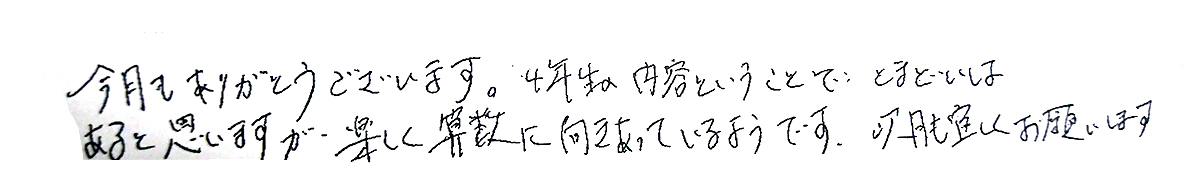 今月もありがとうございます。4年生の内容ということで、とまどいは
あると思いますが、楽しく算数に向きあっているようです。5月も宜しくお願いします